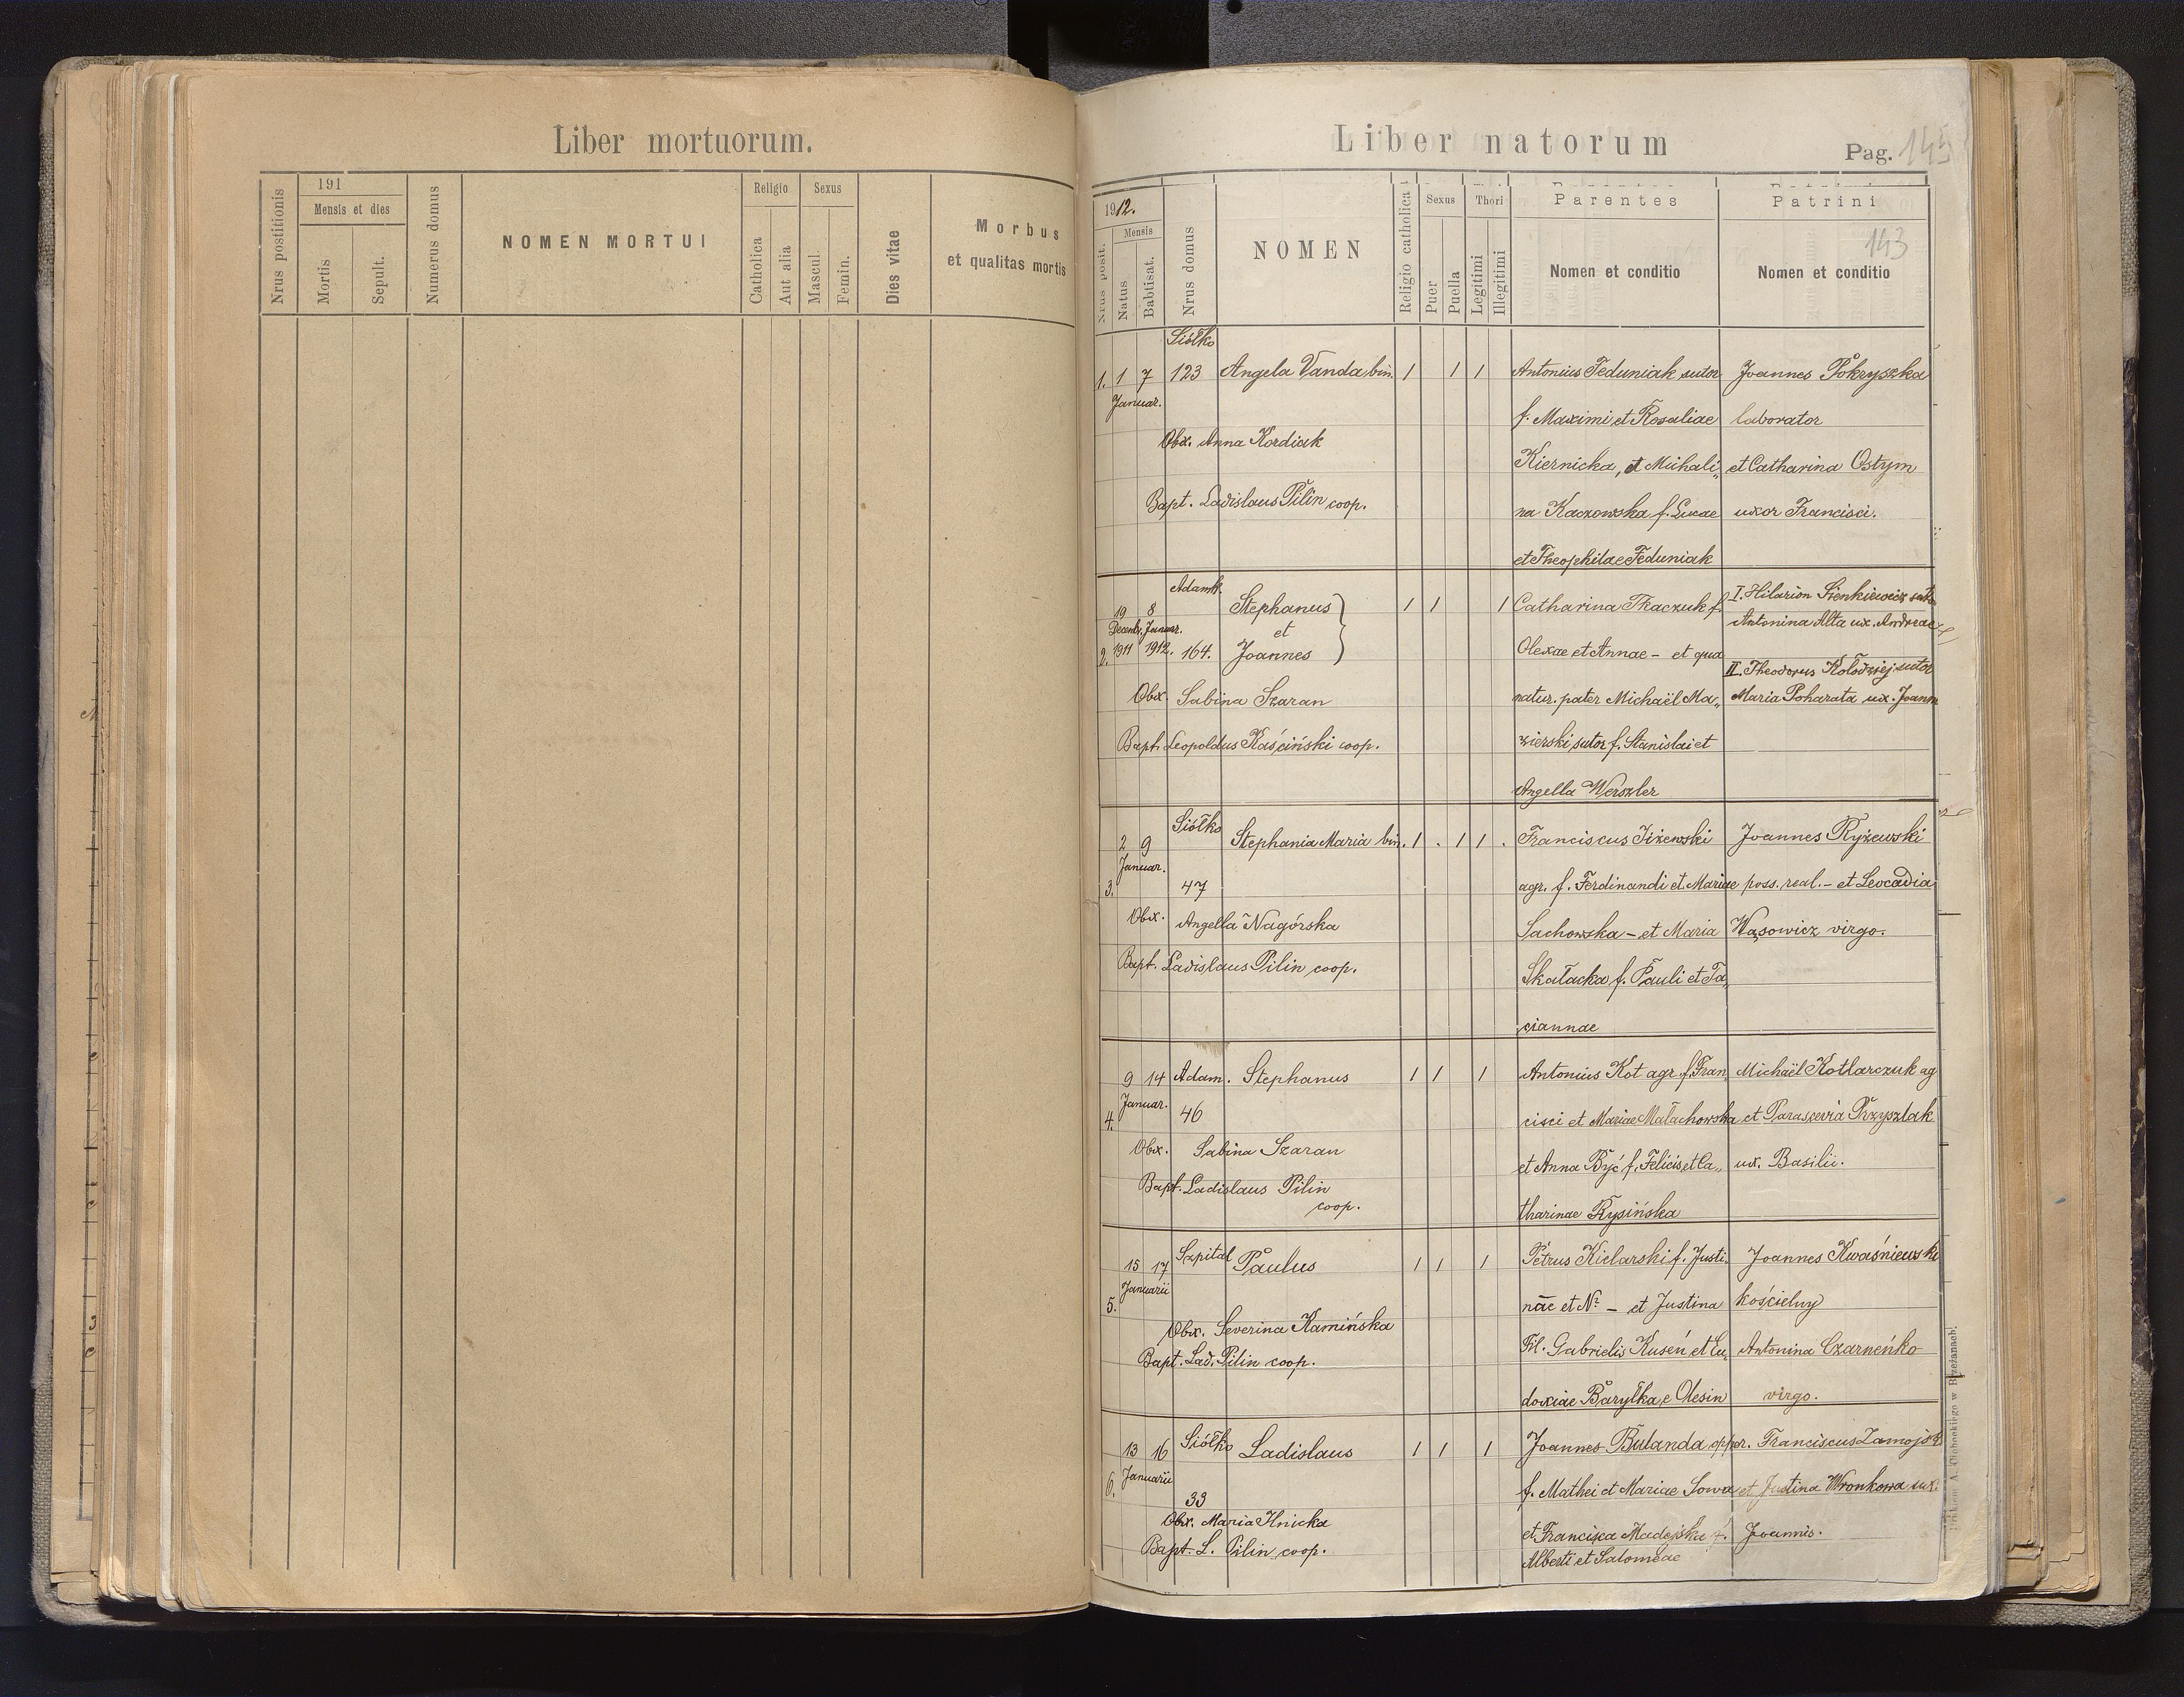 Liber mortuorum.
Nrus postitionis
191
Mensis et dies
Mortis
Sepult.
Numerus domus
NOMEN MORTUI
Religio
Catholica
Aut alia
Sexus
Mascul.
Femin.
Dies vitae
Morbus
et qualitas mortis
Liber natorum
Pag. 145
143
Nrus posit.
1912.
Mensis
Natus
Babtisat.
Nrus domus
NOMEN
Religio catholica
Sexus
Puer
Puella
Thori
Legitimi
Illegitimi
Parentes
Nomen et conditio
Patrini
Nomen et conditio
Siółko
1. 1 7 123 Angela Vanda bin. 1 1 1 Antonius Feduniak sutor Joannes Pokryszka
Januar.
f. Maximi et Rosaliae laborator
Obx. Anna Kordiak
Kiernicka, et Michali„ et Catharina Ostym
Bapt. Ladislaus Pilin coop.
na Kaczowska f. Lucae uxor Francisci.
et Theophilae Feduniak
Adamk.
19 8 Stephanus 1 1 1 Catharina Tkaczuk f. I. Hilarion Sienkiewicz
Decemb. Januar. et Antonina Alta ux. Andreae
2. 1911 1912. 164. Joannes Olexae et Annae – et qua
II. Theodorus Kołodziej sutor
Obx. Sabina Szaran natur. pater Michaël Ma„ Maria Poharata ux. Joann
Bapt. Leopoldus Kaściński coop. zierski sutor f. Stanislai et
Angella Werszler
Siółko
2 9 Stephania Maria bin. 1 . 1 1 . Franciscus Iiżewski Joannes Ryżewski
Januar.
3. 47 agr. f. Ferdinandi et Mariae poss. real. – et Leocadia
Obx. Angella Nagórska Sachowska – et Maria Wąsowicz virgo.
Bapt. Ladislaus Pilin coop.
Skałacka f. Pauli et Ta„
ciannae
9 14 Adam. Stephanus 1 1 1 Antonius Kot agr. f. Fran„ Michaël Kotlarczuk ag
Januar.
4. 46 cisci et Mariae Małachowska et Paraszevia Przyszlak
Obx. Sabina Szaran
et Anna Być f. Felicis et Ca„ ux. Basilii.
Bapt. Ladislaus Pilin
coop.
tharinae Rysińska
15 17 Szpital Paulus 1 1 1 Petrus Kielarski f. Justi„ Joannes Kwaśniewski
Januarii
5. nae et N? – et Justina kościelny
Obx. Severina Kamińska
Fil. Gabrielis Kuseń et Eu„ Antonina Czarneńko
Bapt. Lad. Pilin coop.
doxiae Baryłka e Olesin virgo.
13 16 Siółko Ladislaus 1 1 1 Joannes Bulanda opper. Franciscus Zamojsk
Januarii
6. 33 f. Mathei et Mariae Sowa et Justina Wronkowa
Obx. Maria Ilnicka
et Francisca Madejska f. Joannis.
Bapt. L. Pilin coop.
Alberti et Salomeae